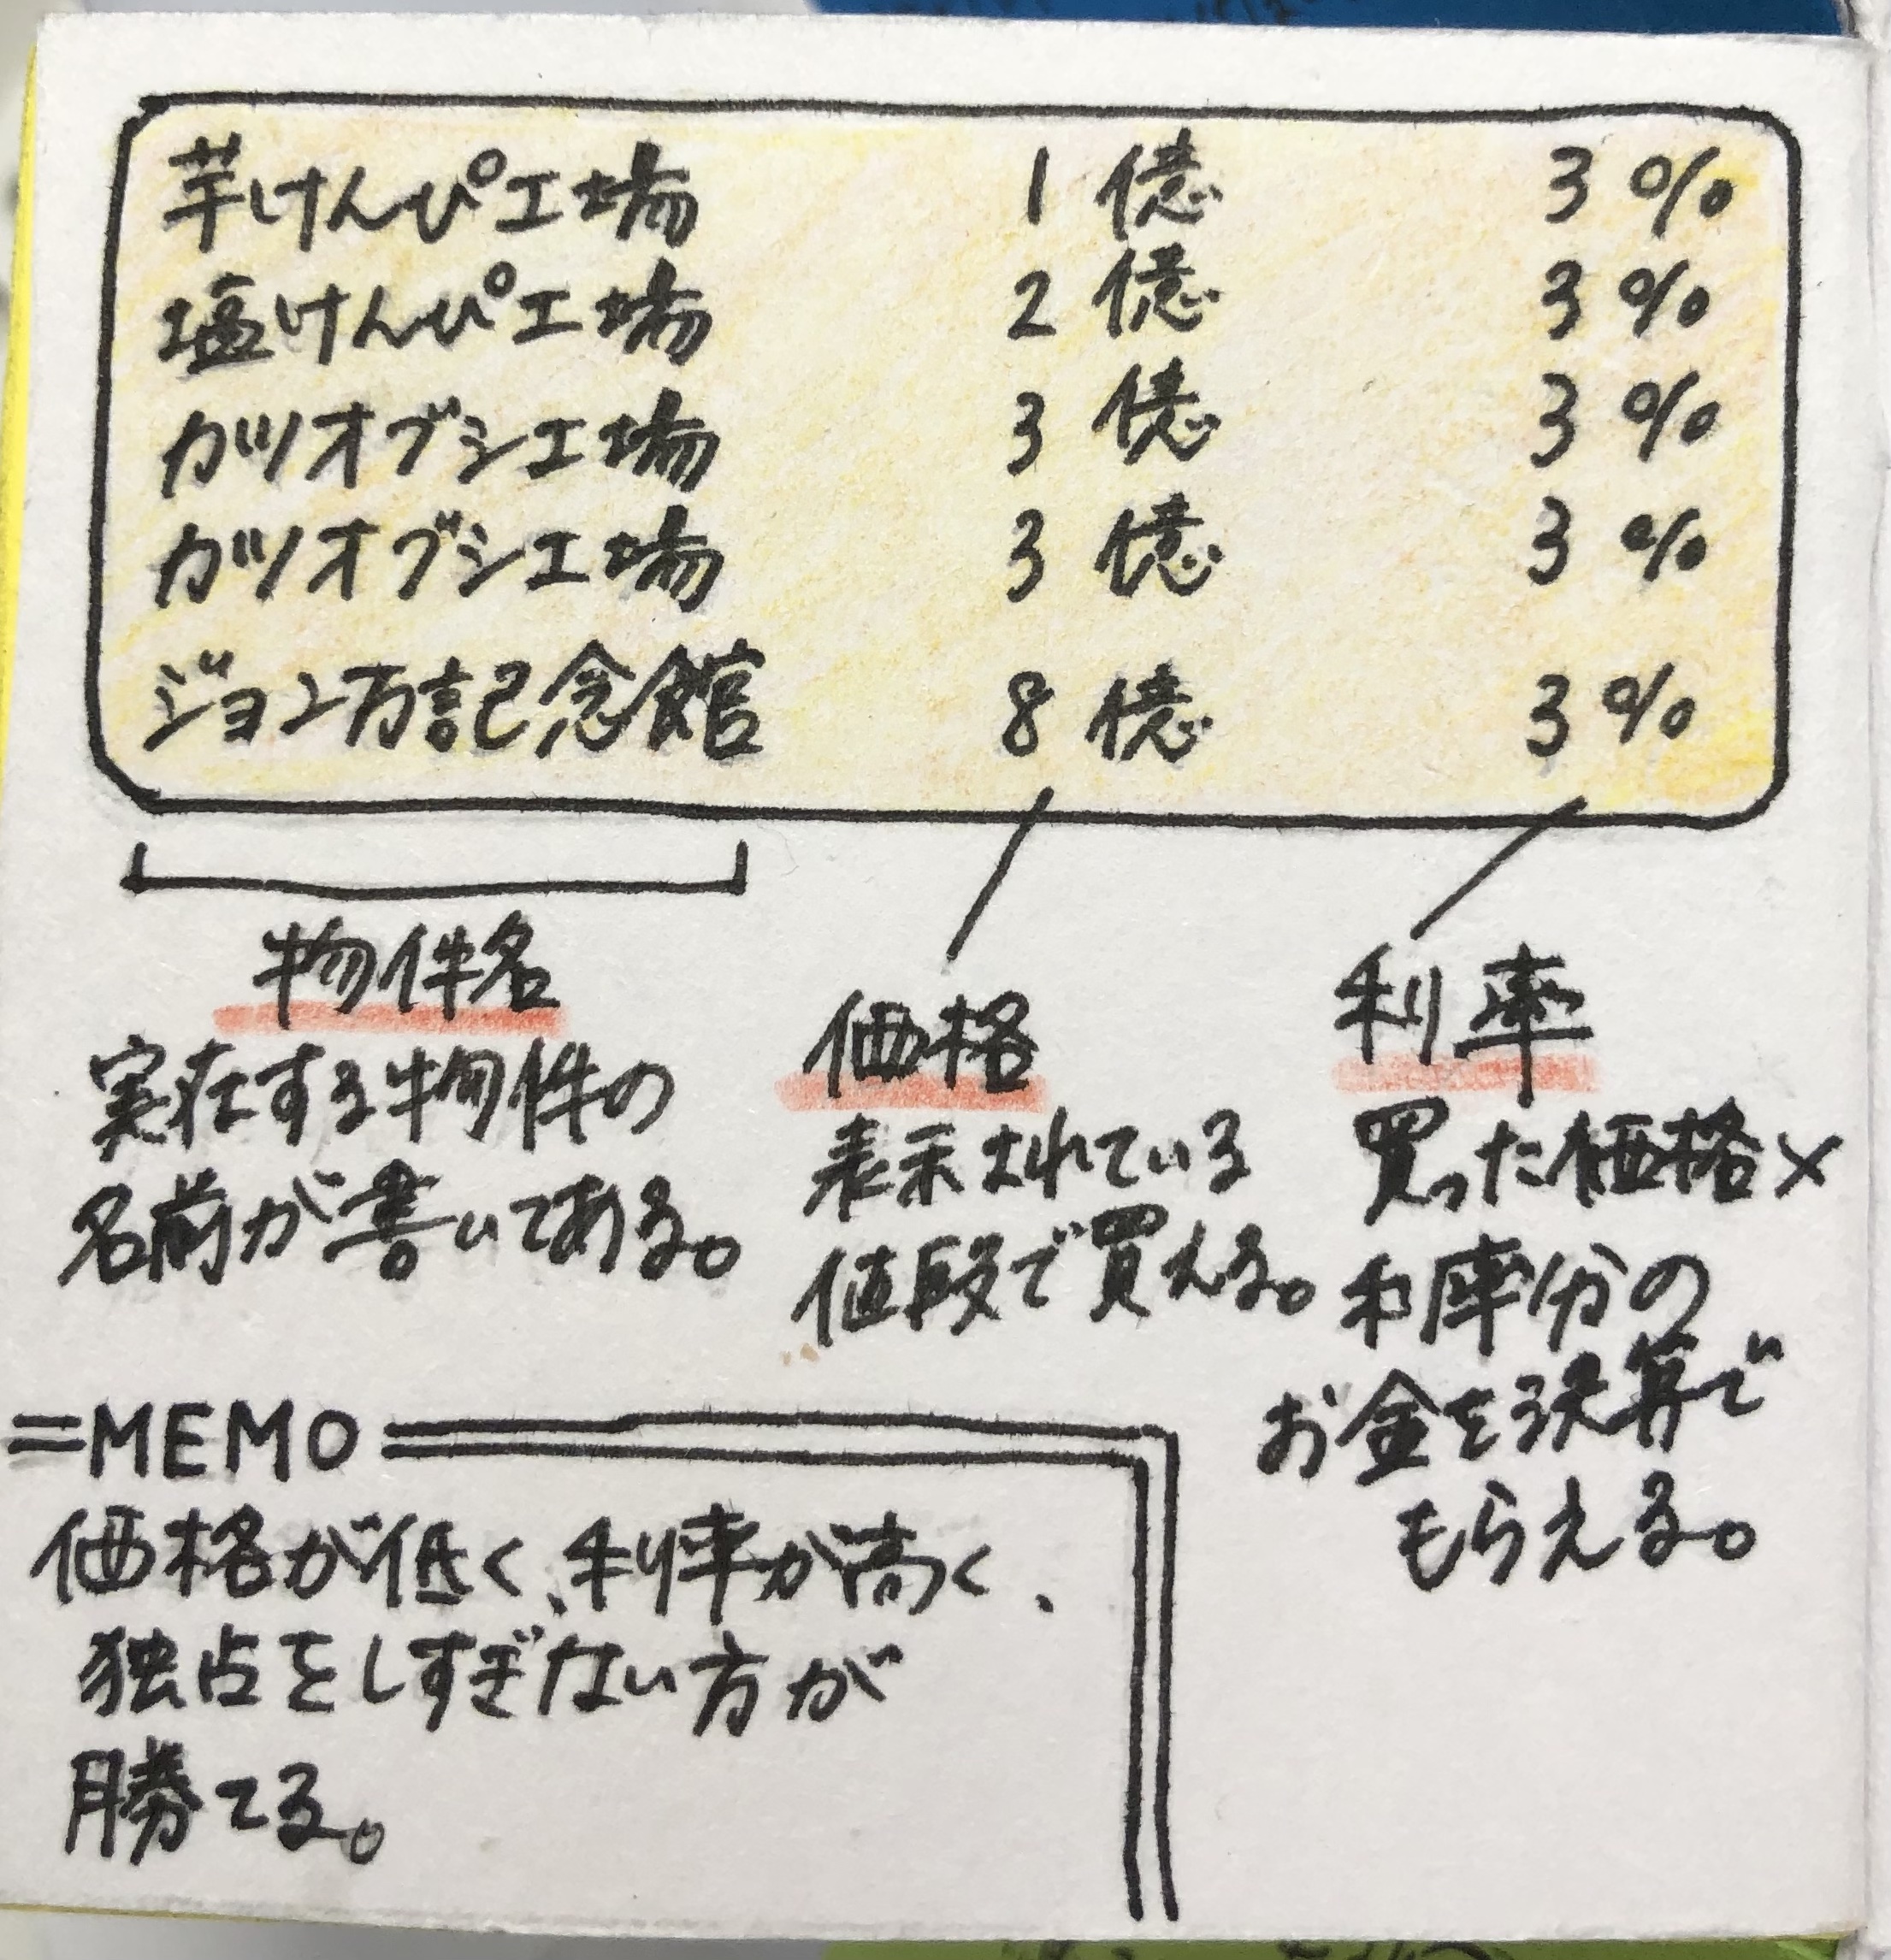 芋けんぴ工場 1億 3%
塩けんぴ工場 2億 3%
カツオブシ工場 3億 3%
カツオブシ工場 3億 3%
ジョン万記念館 8億 3%
物件名
実在する物件の
名前が書いてある。
価格
表示されている
値段で買える。
利率
買った価格×
利率分の
お金を決算で
もらえる。
=MEMO=
価格が低く、利率が高く、
独占をしすぎない方が
勝てる。